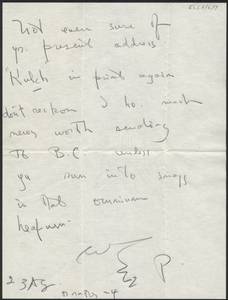 Not even sure of
yr. present address
"Kulch" in print again
don't reckon I ho. much
news worth sending
to B.C. unless
ya run into snags
in that
P.
23 Ag